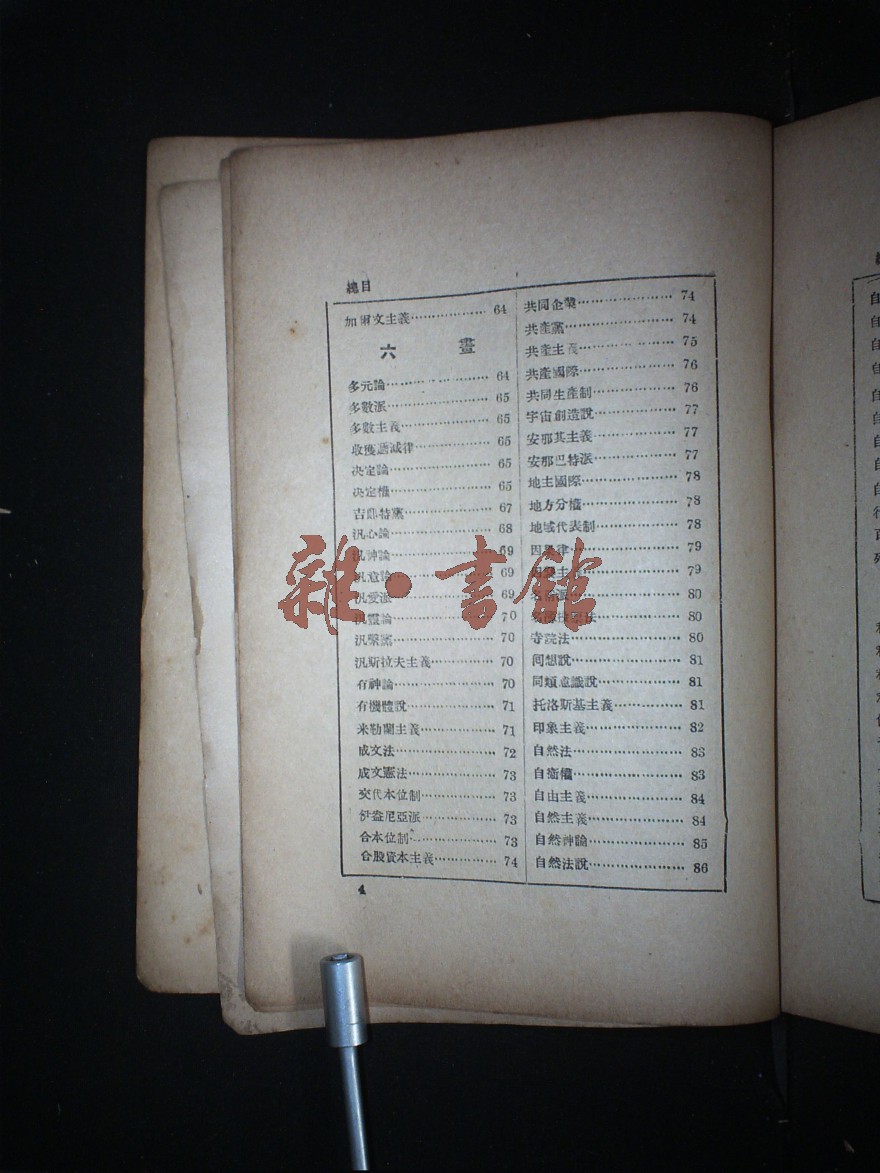 總目
加爾文主義 64
六 畫
多元論 64
多數派 65
多數主義 65
收獲遞減律 65
決定論 65
決定權 65
吉爾特黨 67
汎心論 68
汎神論 69
汎意論 69
汎愛派 69
汎靈論 70
汎繫黨 70
汎斯拉夫主義 70
有神論 70
有機體說 71
米勒蘭主義 71
成文法 72
成文憲法 73
交代本位制 73
伊盎尼亞派 73
合本位制 73
合股資本主義 74
共同企業 74
共產黨 74
共產主義 75
共產國際 76
共同生產制 76
宇宙創造說 77
安那其主義 77
安那巴特派 77
地主國際 78
地方分權 78
地域代表制 78
因果律 79
79
80
80
寺院法 80
回想說 81
同類意識說 81
托洛斯基主義 81
印象主義 82
自然法 83
自衛權 83
自由主義 84
自然主義 84
自然神論 85
自然法說 86
4
雜·書館